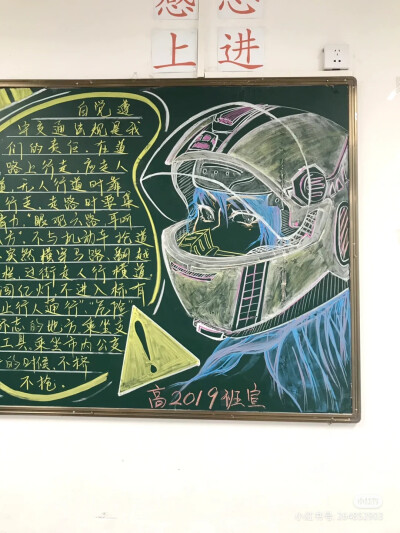 上 进
自觉遵
守交通法规是我
们的责任,在道
路上行走,应走人
道,无人行道时靠
行走,走路时要集
"眼观六路,耳听
方",不与机动车抢道
突然横穿马路、翻越
栏,过街走人行横道
闯红灯,不进入标有
止行人通行""危险"
标志的地方,乘坐交
工具,乘坐市内公交
的时候,不挤
不抢。
高2019班宣
小红书号: 264852903